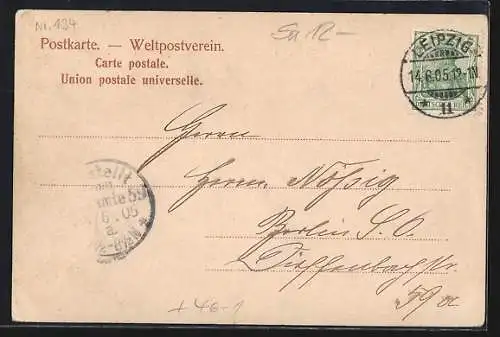 Nr. 134
Sa 12-
Postkarte. — Weltpostverein.
Carte postale.
Union postale universelle.
LEIPZIG
14.6.05.12-1N.
* 11 *
Herrn
Herrn Nößig
Berlin S.O.
Dieffenbach Str.
59a
stellt
amte 59
6.05
+46-1